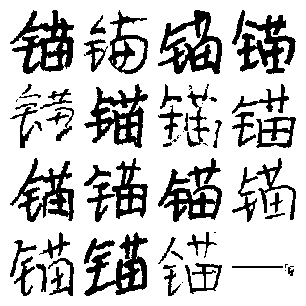 锚锚锚锚
锚锚锚锚
锚锚锚锚
锚锚锚